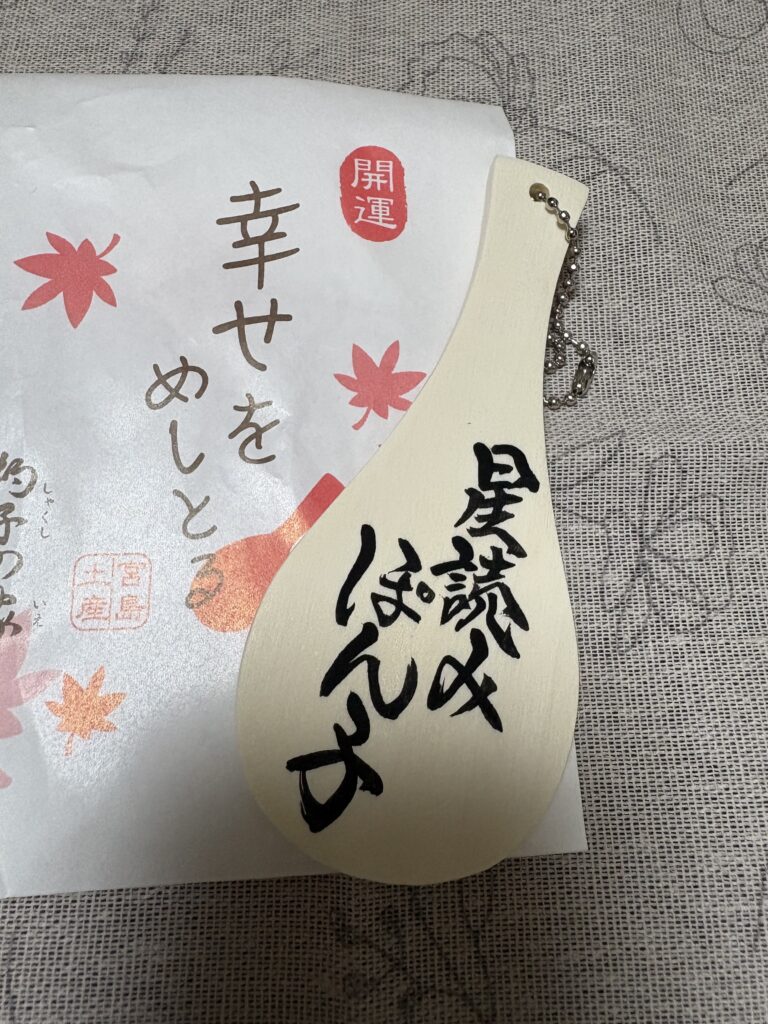 開運
幸せを
めしとる
杓子の家
しゃくし
いえ
宮島
土産
星読み
ぽん子